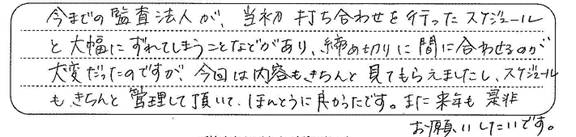 今までの監査法人が、当初打ち合わせを行ったスケジュール
と大幅にずれてしまうことなどがあり、締め切りに間に合わせるのが
大変だったのですが、今回は内容もきちんと見てもらえましたし、スケジュール
も、きちんと管理して頂いて、ほんとうに良かったです。また来年も是非
お願いしたいです。